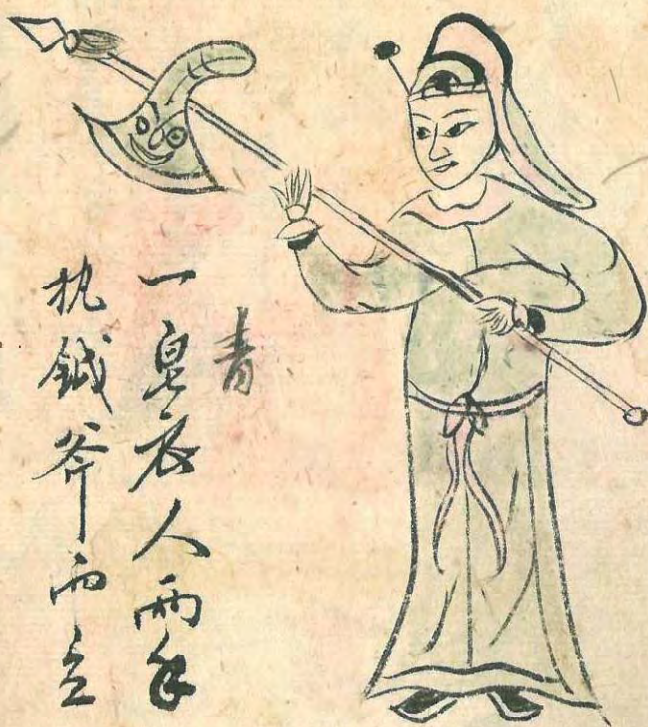 青
一皂衣人兩手
执鉞斧而立